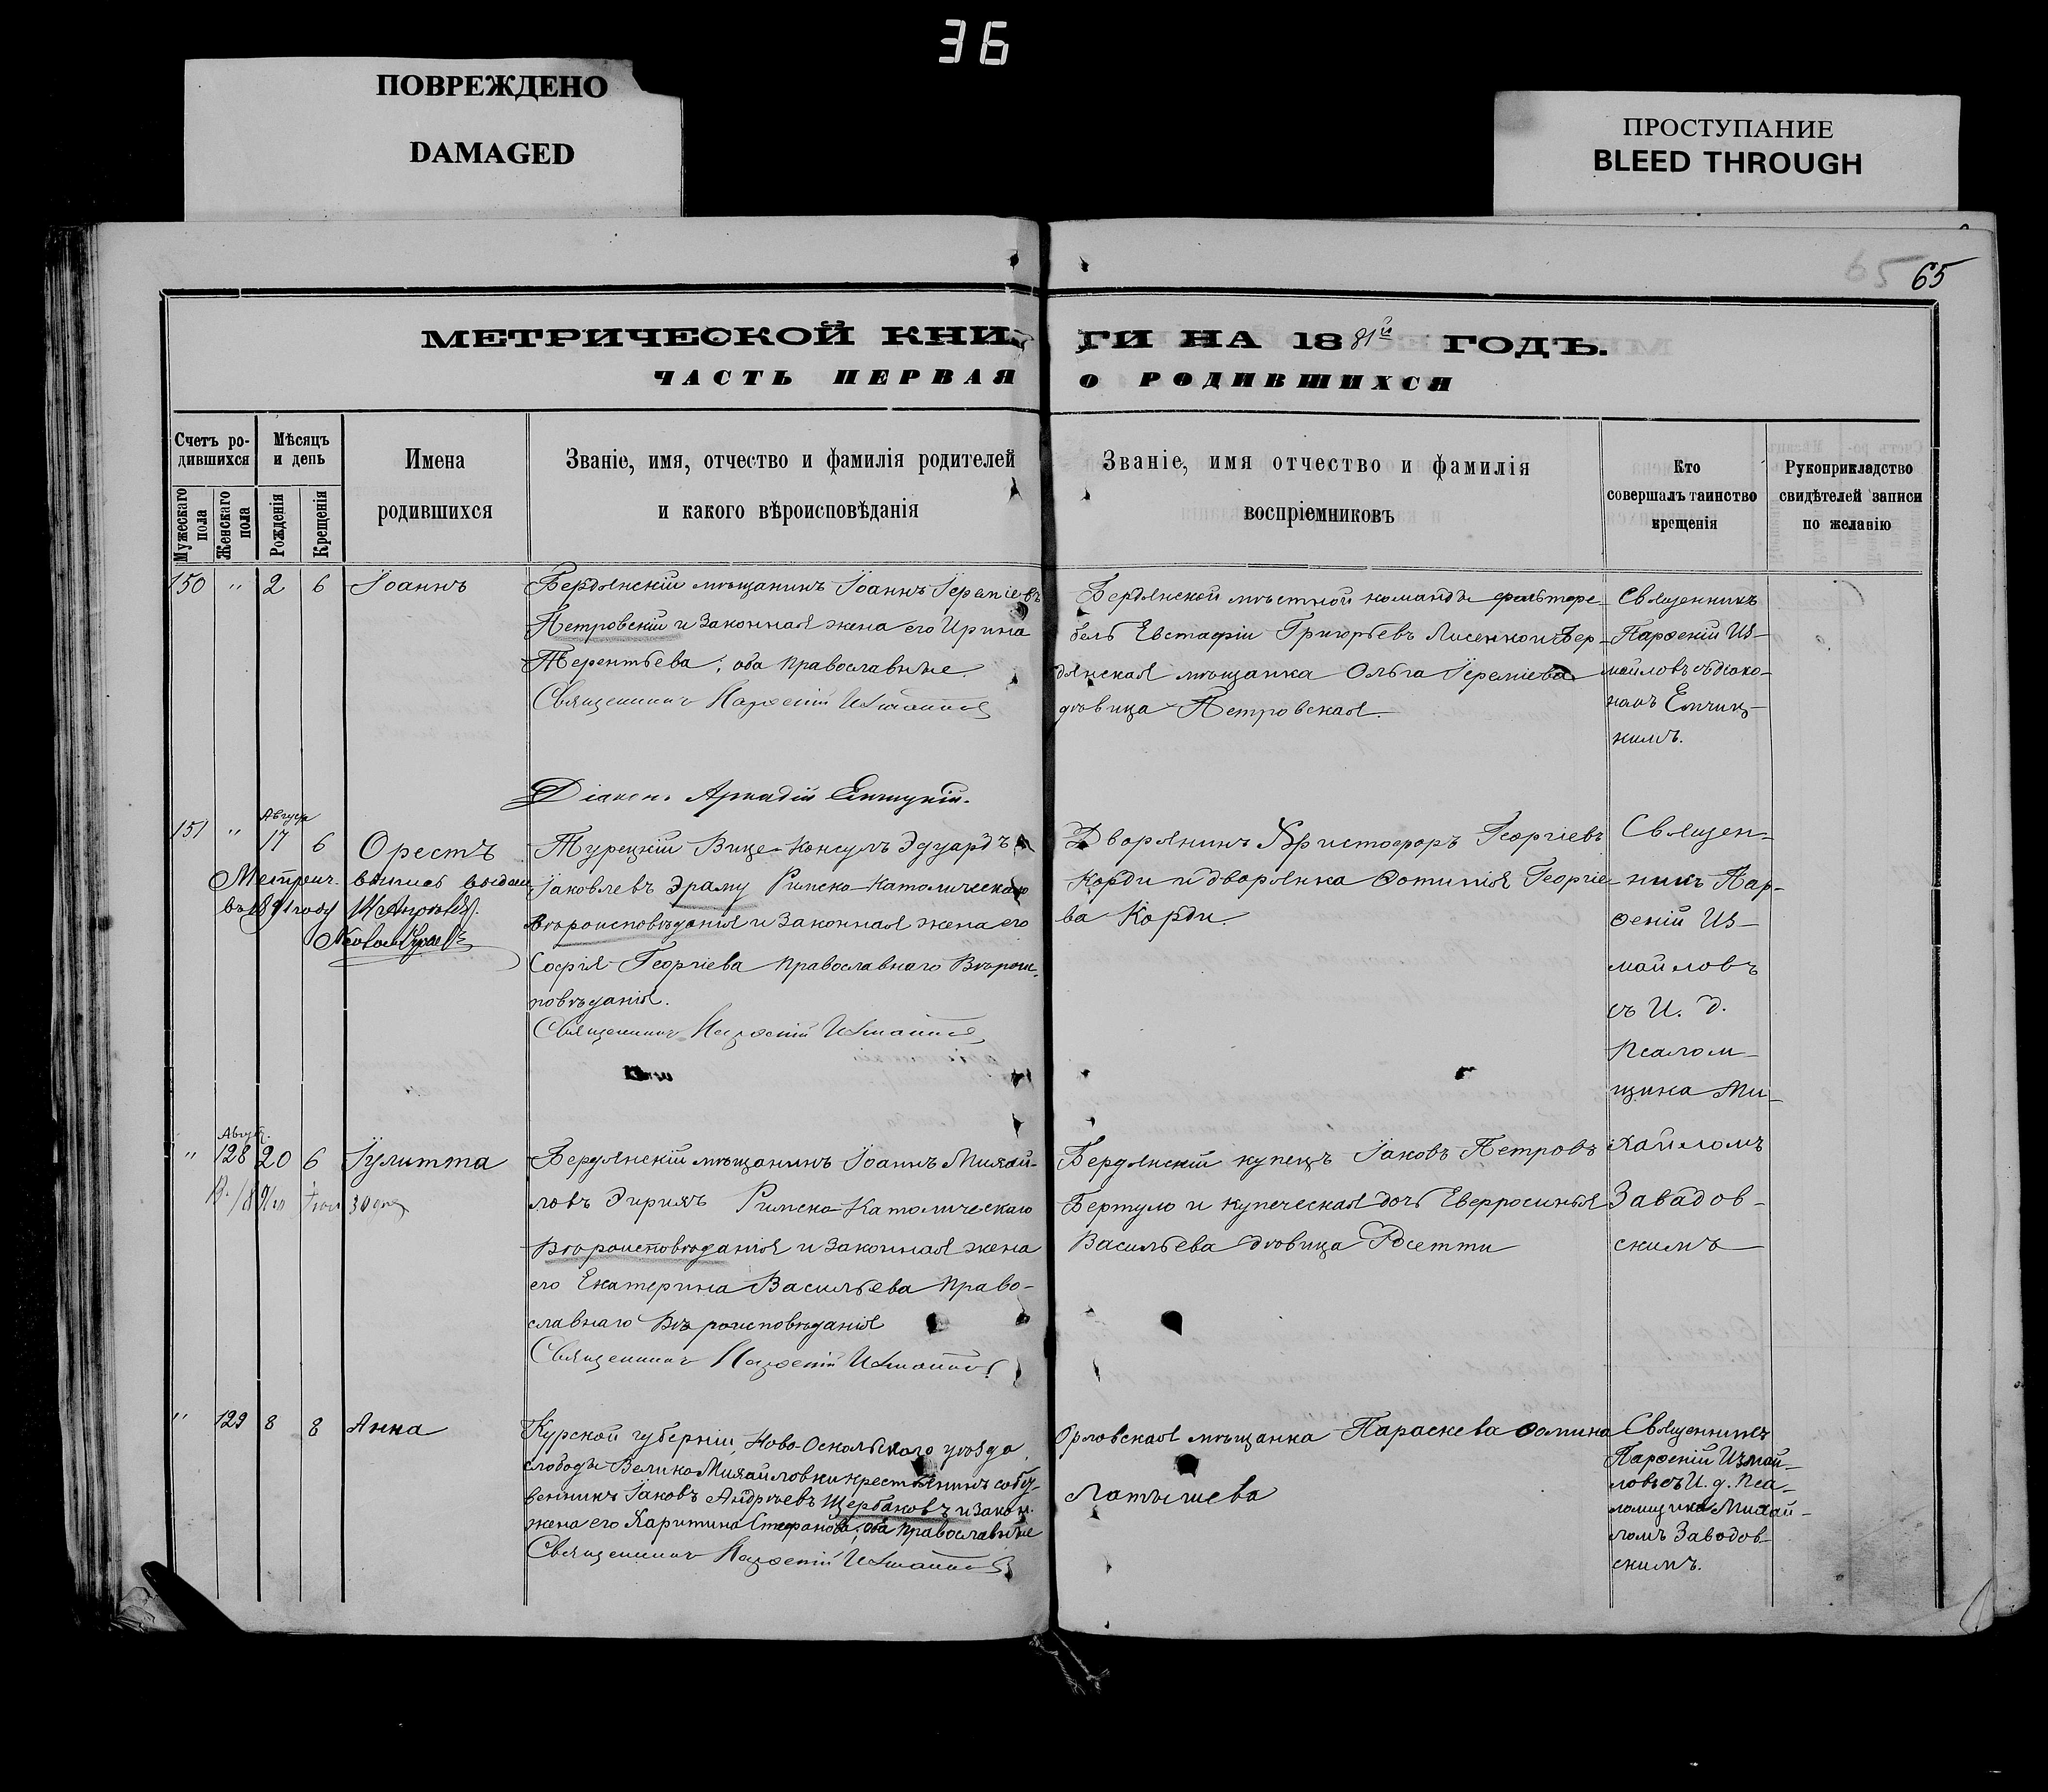 36
ПОВРЕЖДЕНО
DAMAGED
ПРОСТУПАНИЕ
BLEED THROUGH
65
65
МЕТРИЧЕСКОЙ КНИГИ НА 1881й ГОДЪ.
ЧАСТЬ ПЕРВАЯ О РОДИВШИХСЯ
Счетъ ро-
дившихся
Мужескаго пола
Женскаго пола
Мѣсяцъ
и день
Рожденія
Крещенія
Имена
родившихся
Званіе, имя, отчество и фамилія родителей
и какого вѣроисповѣданія
Званіе, имя отчество и фамилія
воспріемниковъ
Кто
совершалъ таинство
крещенія
Рукоприкладство
свидѣтелей записи
по желанію
150 " 2 6 Іоаннъ
Бердянскій мѣщанинъ Іоаннъ Іереміевъ
Петровскій и законная жена его Ирина
Терентьева, оба православные.
Священникъ Парѳеній Измаиловъ
Діаконъ Аркадій Емчицкій.
Бердянской мѣстной команды фельтфе-
бель Евстафій Григорьевъ Лисенко и Бер-
дянская мѣщанка Ольга Іереміева
дѣвица Петровская.
Священникъ
Парѳеній Из-
маиловъ съ діако-
номъ Емчиц-
кимъ.
151 " Август 17 6 Орестъ
Метрич. выпись выдана
въ 1891 году
Турецкій Вице-Консулъ Эдуардъ
Іаковлевъ Эраму Римско-Католическаго
вѣроисповѣданія и законная жена его
Софія Георгіева православнаго вѣроис-
повѣданія.
Священникъ Парѳеній Измаиловъ
Дворянинъ Христофоръ Георгіевъ
Корди и дворянка Фотинія Георгіе-
ва Корди.
Священ-
никъ Пар-
ѳеній Из-
маиловъ
съ И. д.
псалом-
щика Ми-
хайломъ
Завадов-
скимъ
" Август. 128 20 6 Іулитта
Бердянскій мѣщанинъ Іоаннъ Михай-
ловъ Римско-Католическаго
вѣроисповѣданія и законная жена
его Екатерина Васильева право-
славнаго вѣроисповѣданія
Священникъ Парѳеній Измаиловъ
Бердянскій купецъ Іаковъ Петровъ
Бертуло и купеческая дочь Евфросинья
Васильева дѣвица Розетти
" 129 8 8 Анна
Курской губерніи, Ново-Оскольскаго уѣзда,
слободы Велико Михайловки крестьянинъ собст-
венникъ Іаковъ Андреевъ Щербаковъ и закон.
жена его Харитина Стефанова, оба православные
Священникъ Парѳеній Измаиловъ
Орловская мѣщанка Параскева Ѳомина
Латышева
Священникъ
Парѳеній Измаи-
ловъ съ И. д. пса-
ломщика Михай-
ломъ Заводов-
скимъ.